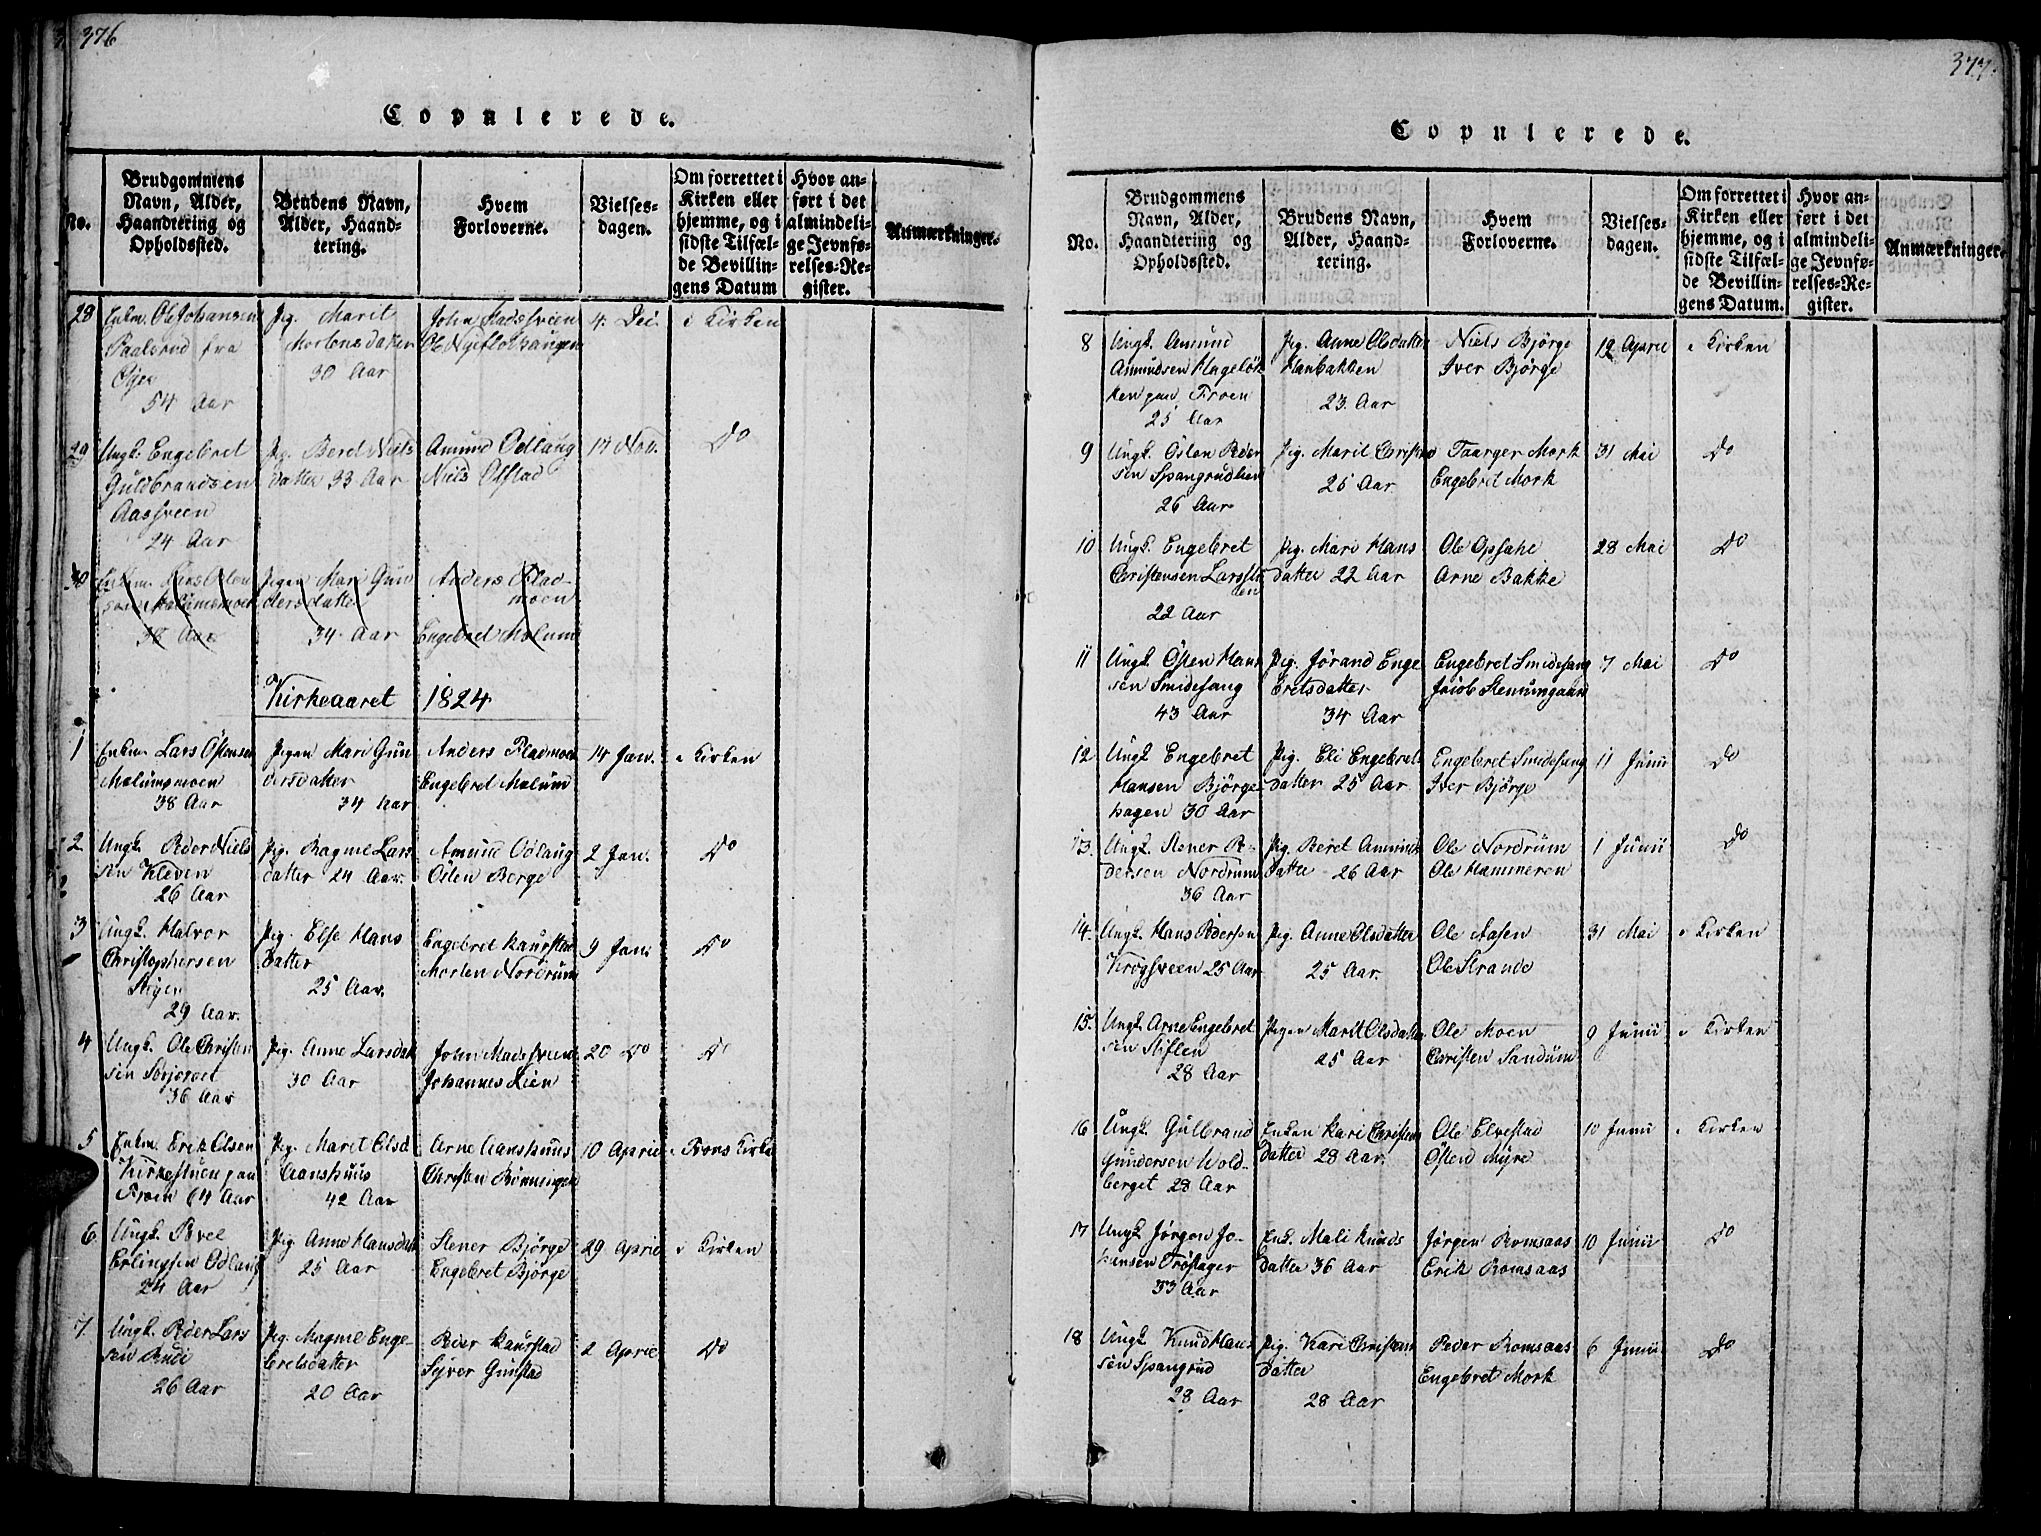 376
Copulerede.
No.
Brudgommens Navn, Alder, Haandtering og Opholdssted.
Brudens Navn, Alder, Haandtering.
Hvem Forloverne.
Vielsesdagen.
Om forrettet i Kirken eller hjemme, og i sidste Tilfælde Bevillingens Datum
Hvor anført i det almindelige Jevnførelses-Register.
Anmærkninger.
28 Enkm. Ole Johansen Pig. Marit John Madssveen 4. Dec. i Kirken
Paalsrud fra Mortensdatter
Øyer 30 Aar
54 Aar
29 Ungk. Engebret Pig. Beret Niels Amund Odlaug 17 Nov. Do
Guldbrandsen datter 33 Aar Niels Olstad
Aassveen
24 Aar
Enkm. Lars Osten Pigen Mari Gun Anders
sen Melumsmoen dersdatter moen
38 Aar 34 Aar Engebret Melum
Kirkeaaret 1824
1 Enkm Lars Östensen Pigen Mari Gun Anders Fladmoen 14 Jan. i Kirken
Melumsmoen dersdatter Engebret Melum
38 Aar 34 Aar
2 Ungk. Peder Niels Pig. Ragne Lars Amund Odlaug 2 Jan. Do
sen Kleven datter 24 Aar. Östen Berge
26 Aar
3 Ungk. Halvor Pig. Else Hans Engebret Kaurstad 9 Jan: Do
Christophersen datter Morten Nordrum
Stigen 25 Aar.
29 Aar.
4 Ungk. Ole Christen Pig. Anne Larsdat John Madssveen 20 Do Do
sen 30 Aar Johannes Lien
36 Aar
5 Enkm Erik Olsen Pig. Marit Olsd Arne Aanshuus 10 April i Frons Kirke
Kirkestuen paa Aanshuus Christen Bönningen
Froen 64 Aar 42 Aar
6 Ungk. Povel Pig. Anne Hansdat Stener Björge 29 April i Kirken
Erlingsen Odlaug 25 Aar Engebret Björge
24 Aar
7. Ungk. Peder Lars Pig. Magnil Enge- Peder Kaurstad 2 April Do
sen Rudi bretsdatter Syver Gunstad
26 Aar 20 Aar
377.
Copulerede.
No.
Brudgommens Navn, Alder, Haandtering og Opholdssted.
Brudens Navn, Alder, Haandtering.
Hvem Forloverne.
Vielsesdagen.
Om forrettet i Kirken eller hjemme, og i sidste Tilfælde Bevillingens Datum.
Hvor anført i det almindelige Jevnførelses-Register.
Anmærkninger.
8 Ungk. Amund Pig. Anne Olsdatter Niels Björge 19 April i Kirken
Amundsen Hageløk Haubakken Iver Björge
ken paa Froen 23. Aar
25 Aar
9 Ungk. Östen Peder Pig. Marit Christen Taarger Mork 31 Mai Do
sen Spangrudlien 25 Aar Engebret Mork
26 Aar
10 Ungk. Engebret Pig. Mari Hans Ole Opsahl 28 Mai Do
Christensen Larsstu datter 22 Aar Arne Bakke
en
22 Aar
11 Ungk. Östen Hans Pig. Jörand Enge Engebret Smidesang 7 Mai Do
sen Smidesang bretsdatter Jacob Stenumgaard
43 Aar 34 Aar
12 Ungk Engebret Pig. Eli Engebrets Engebret Smidesang 11 Junii Do
Hansen Björge datter 25 Aar Iver Björge
hagen 30 Aar
13. Ungk. Stener Pe- Pig. Beret Amunds Ole Nordrum 1 Junii Do
dersen Nordrum datter 26 Aar Ole Hammeren
36 Aar
14. Ungk. Hans Pedersen Pig. Anne Olsdatter Ole Aasen 31 Mai i Kirken
Krogsveen 25 Aar 25 Aar. Ole Strande
15. Ungk. Arne Engebret Pigen Marit Olsdatter Ole Moen 9 Junii i Kirken
sen Stiflen 25 Aar Christen Sandum
28 Aar
16 Ungk. Gulbrand Enken Kari Christen Ole Elvestad 10 Junii i Kirken
Gundersen Wold- datter 28 Aar. Östen Myre
berget 28 Aar
17 Ungk Jörgen Jo- Enk. Mali Knuds Jörgen Romsaas 10 Junii Do
hansen Tröstager datter 36 Aar Erik Romsaas
33 Aar
18 Ungk Knud Han Pig. Kari Christens Peder Romsaas 6 Junii Do
sen Spangrud datter Engebret Mork
28 Aar 28 Aar